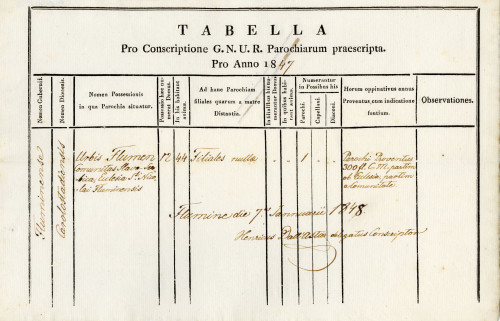 TABELLA
Pro Conscriptione G. N. U. R. Parochiarum praescripta.
Pro Anno 1847
Nomen Gubernii.
Nomen Diocesis.
Nomen Possessionis
in qua Parochia situatur.
Possessio haec nu-
merat Domus.
In his habitant
animae.
Ad hanc Parochiam
filiales quarum a matre
Distantia.
In filialibus his nu-
merantur Domus.
In quibus habi-
tant animae.
Numerantur
in Possibus his
Parochi.
Capellani.
Diaconi.
Horum opinativus annuus
Proventus, cum indicatione
fontium.
Observationes.
Fluminense
Carolostadiensis
Urbis Flumen
Communitas
Ecclesia Sti Nico
lai Fluminensis
12
44
Filiales nulla
1
Parochi Proventus
300 f. C. M. partim
ab Ecclesia, partim
a Comunitate
Flumine die 7a Januarii 1848.
Henricus Dall'Asta delegatus Conscriptor